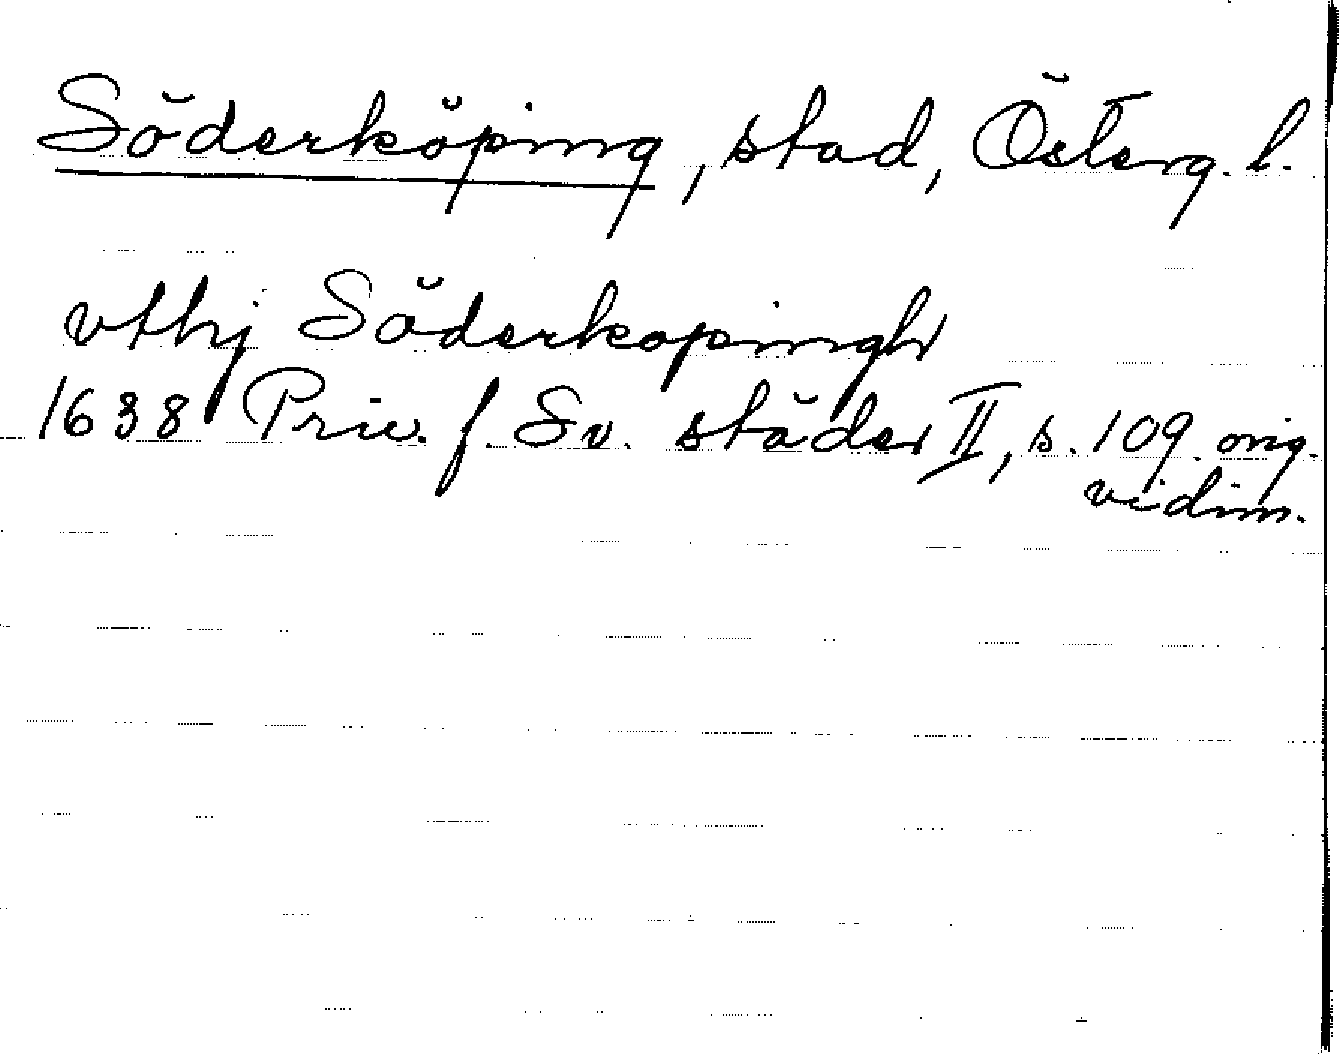 Söderköping, stad, Österg. l.
vthj Söderkopingh
1638 Priv. f. Sv. städer II, s. 109. orig.
vidim.